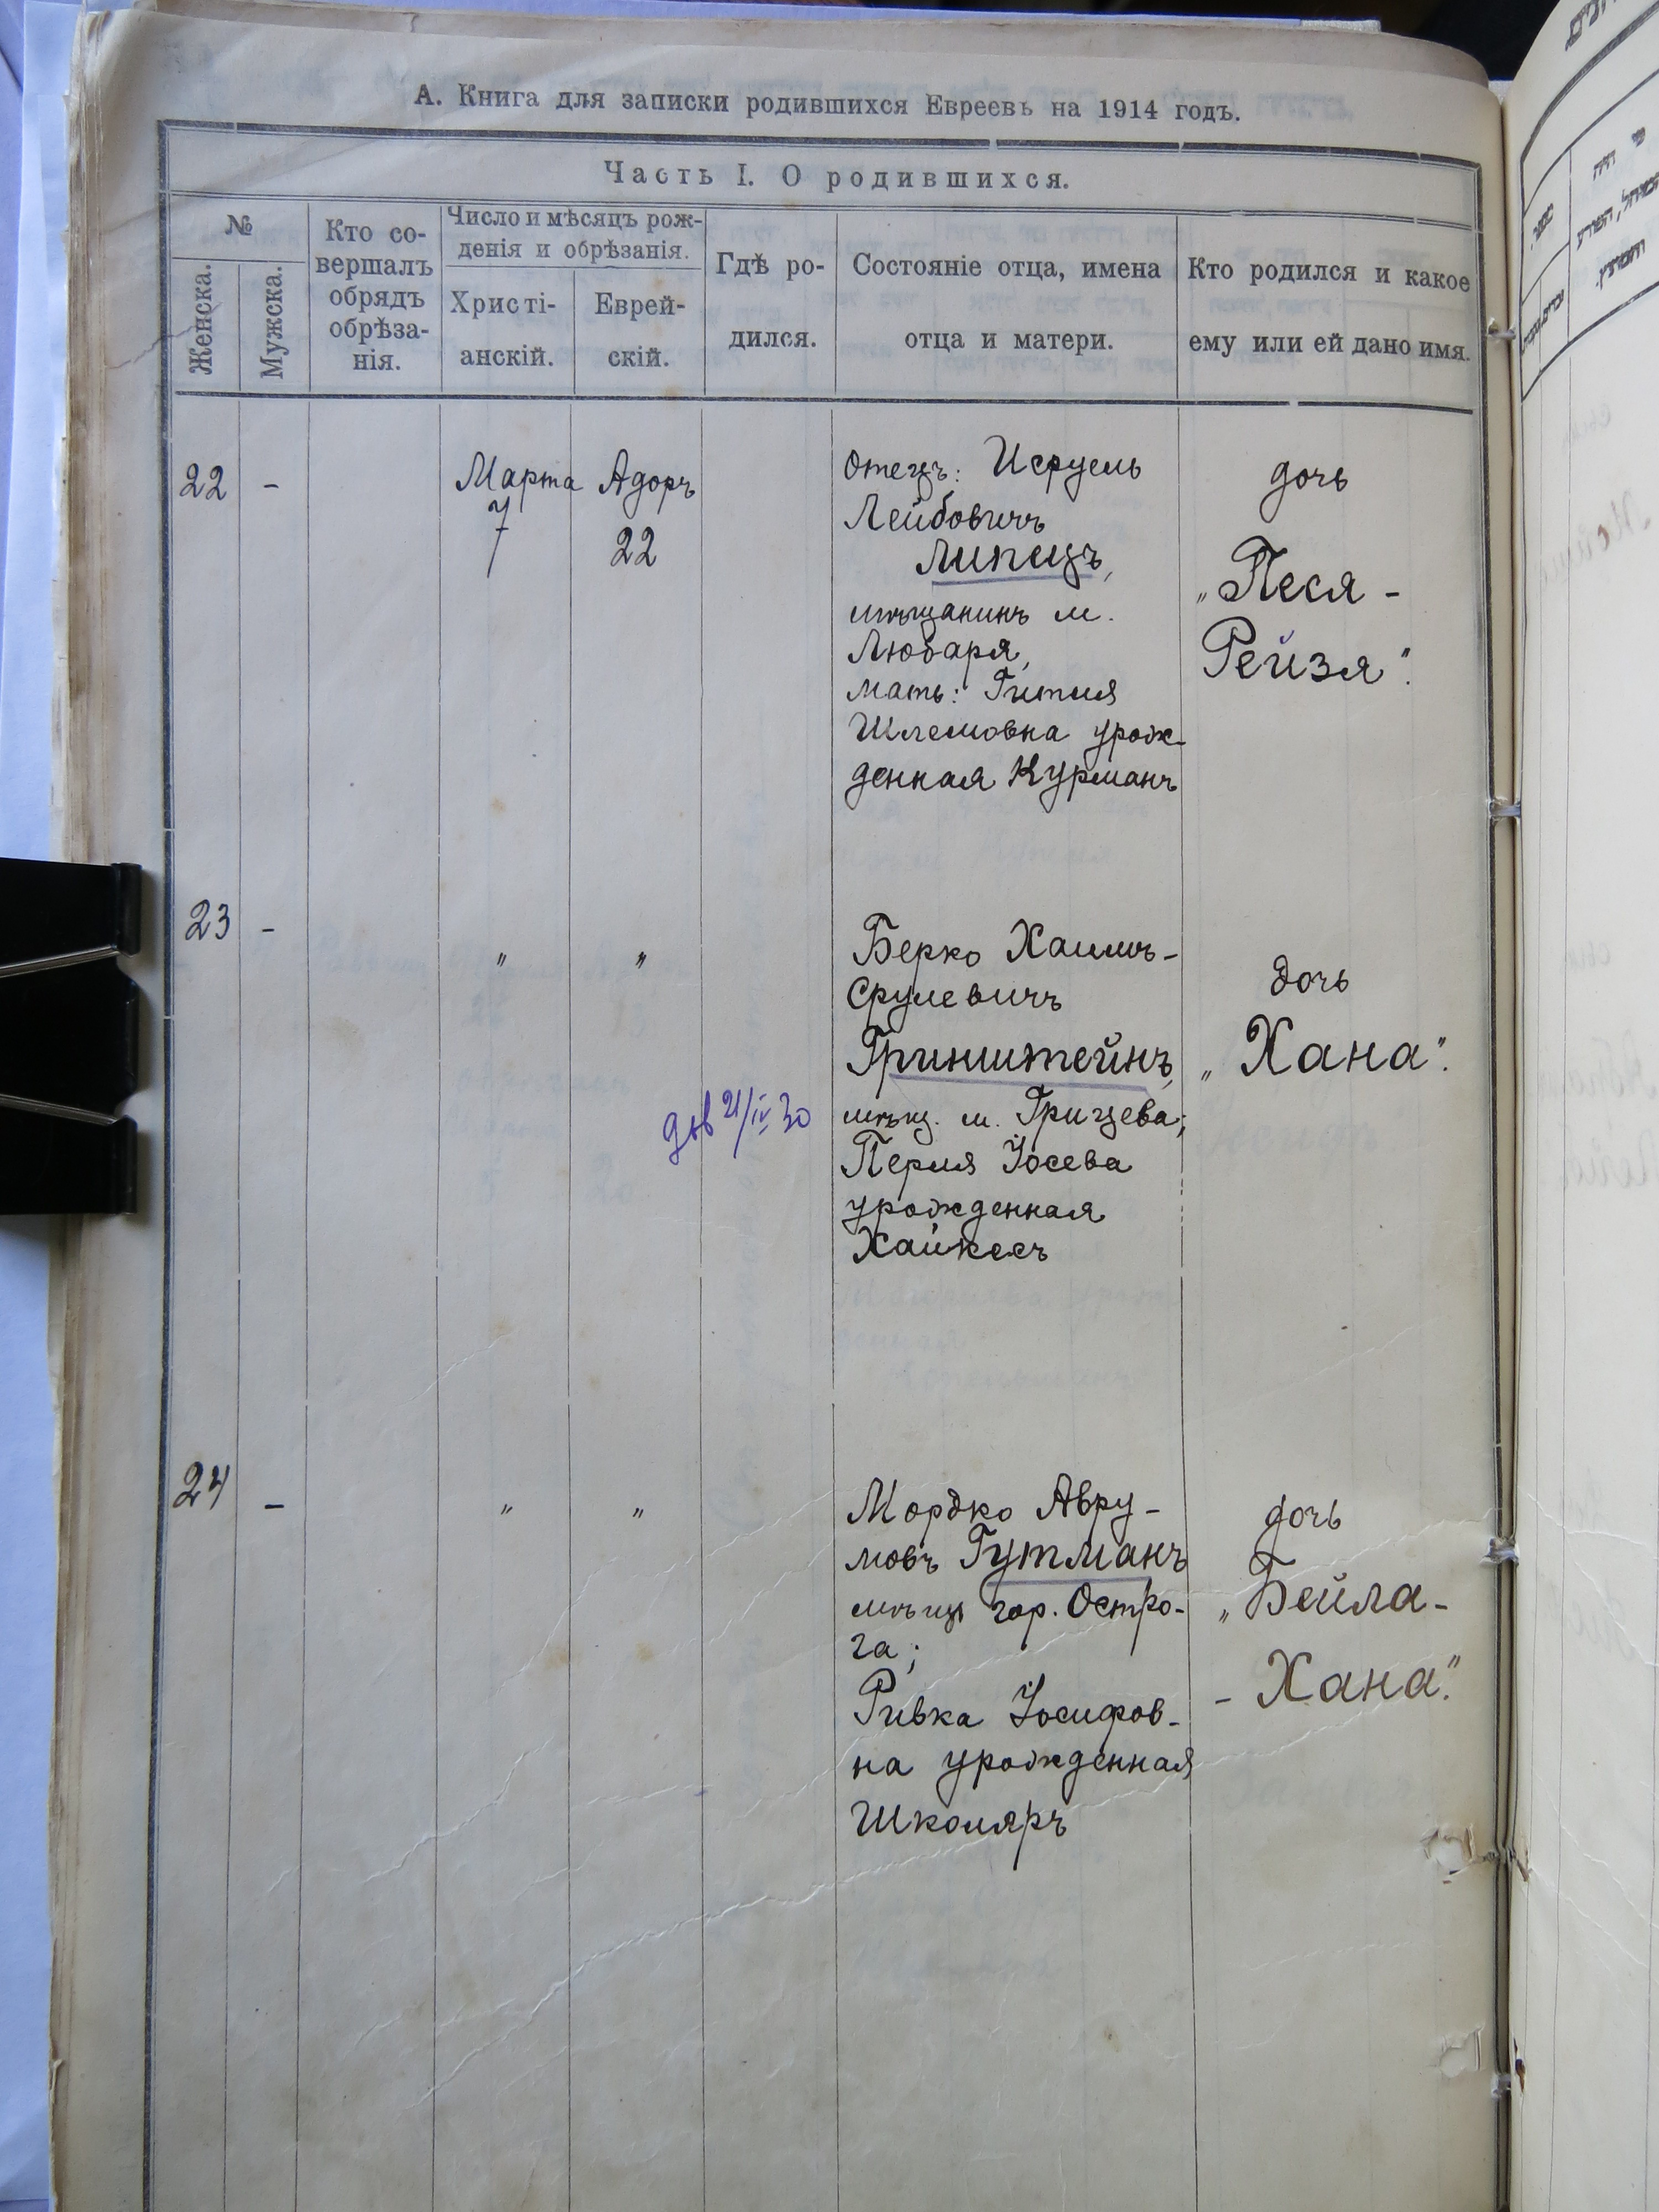 А. Книга для записки родившихся Евреевъ на 1914 годъ.
Часть I. О родившихся.
№
Женска.
Мужска.
Кто со-
вершалъ
обрядъ
обрѣза-
нія.
Число и мѣсяцъ рож-
денія и обрѣзанія.
Христі-
анскій.
Еврей-
скій.
Гдѣ ро-
дился.
Состояніе отца, имена
отца и матери.
Кто родился и какое
ему или ей дано имя.
22
-
Марта
7
Адоръ
22
Отецъ: Исруель
Лейбовичъ
Липецъ,
мѣщанинъ м.
Любаря,
мать: Гитля
Шлемовна урож-
денная Курманъ
дочь
„Песя -
Рейзя".
23
-
"
"
Берко Хаимъ-
Срулевичъ
Гринштейнъ,
мѣщ. м. Грицева;
Перля Іосева
урожденная
Хайкесъ
21/IV 30
дочь
„Хана".
24
-
"
"
Мордко Авру-
мовъ Гутманъ
мѣщ гор. Остро-
га;
Ривка Іосифов-
на урожденная
Школяръ
дочь
„Бейла-
- Хана".